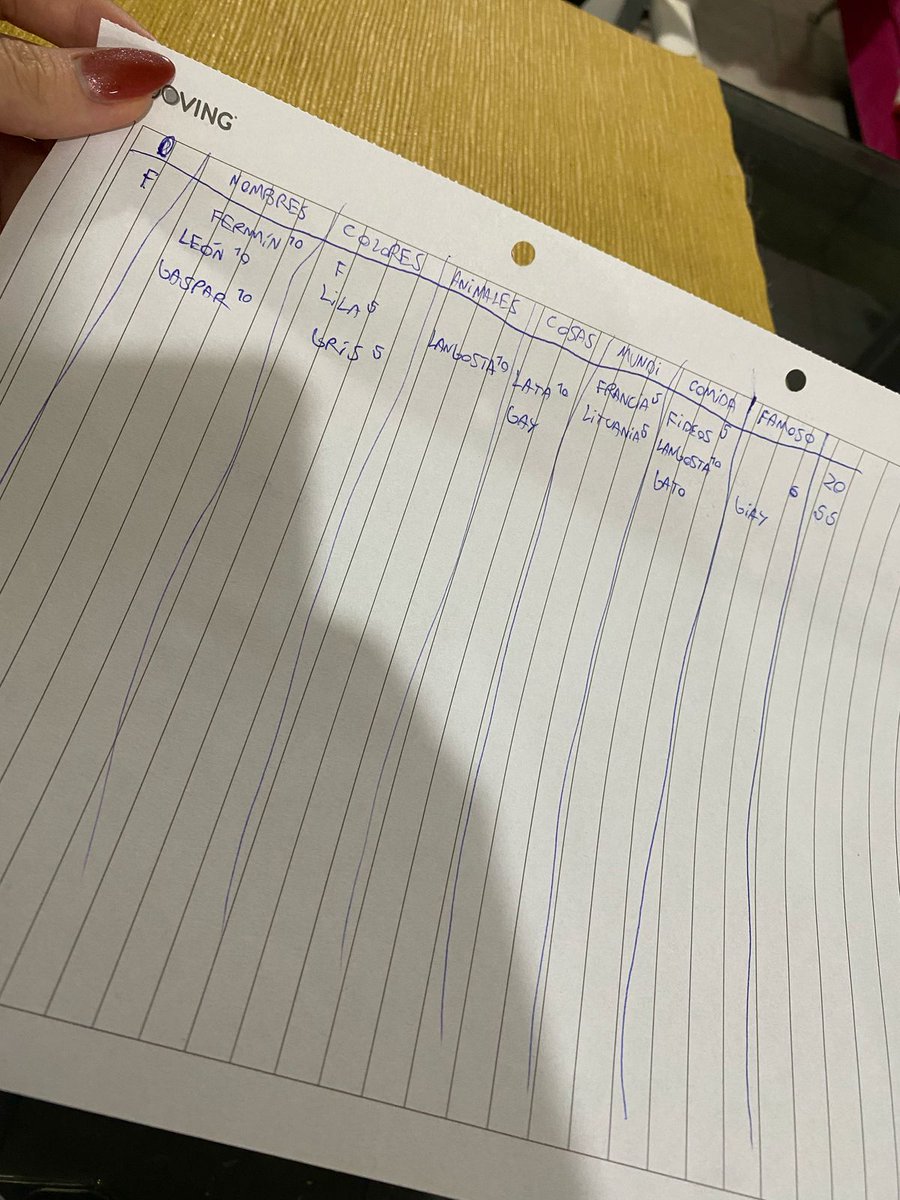 OVING
NOMBRES COLORES ANIMALES COSAS MUNDI COMIDA FAMOSO
F FERMÍN 10 F FRANCIA 5 FIDEOS 5 20
LEÓN 10 LILA 5 LANGOSTA 10 LATA 10 LITUANIA 5 LANGOSTA 10 55
GASPAR 10 GRIS 5 GAY GATO